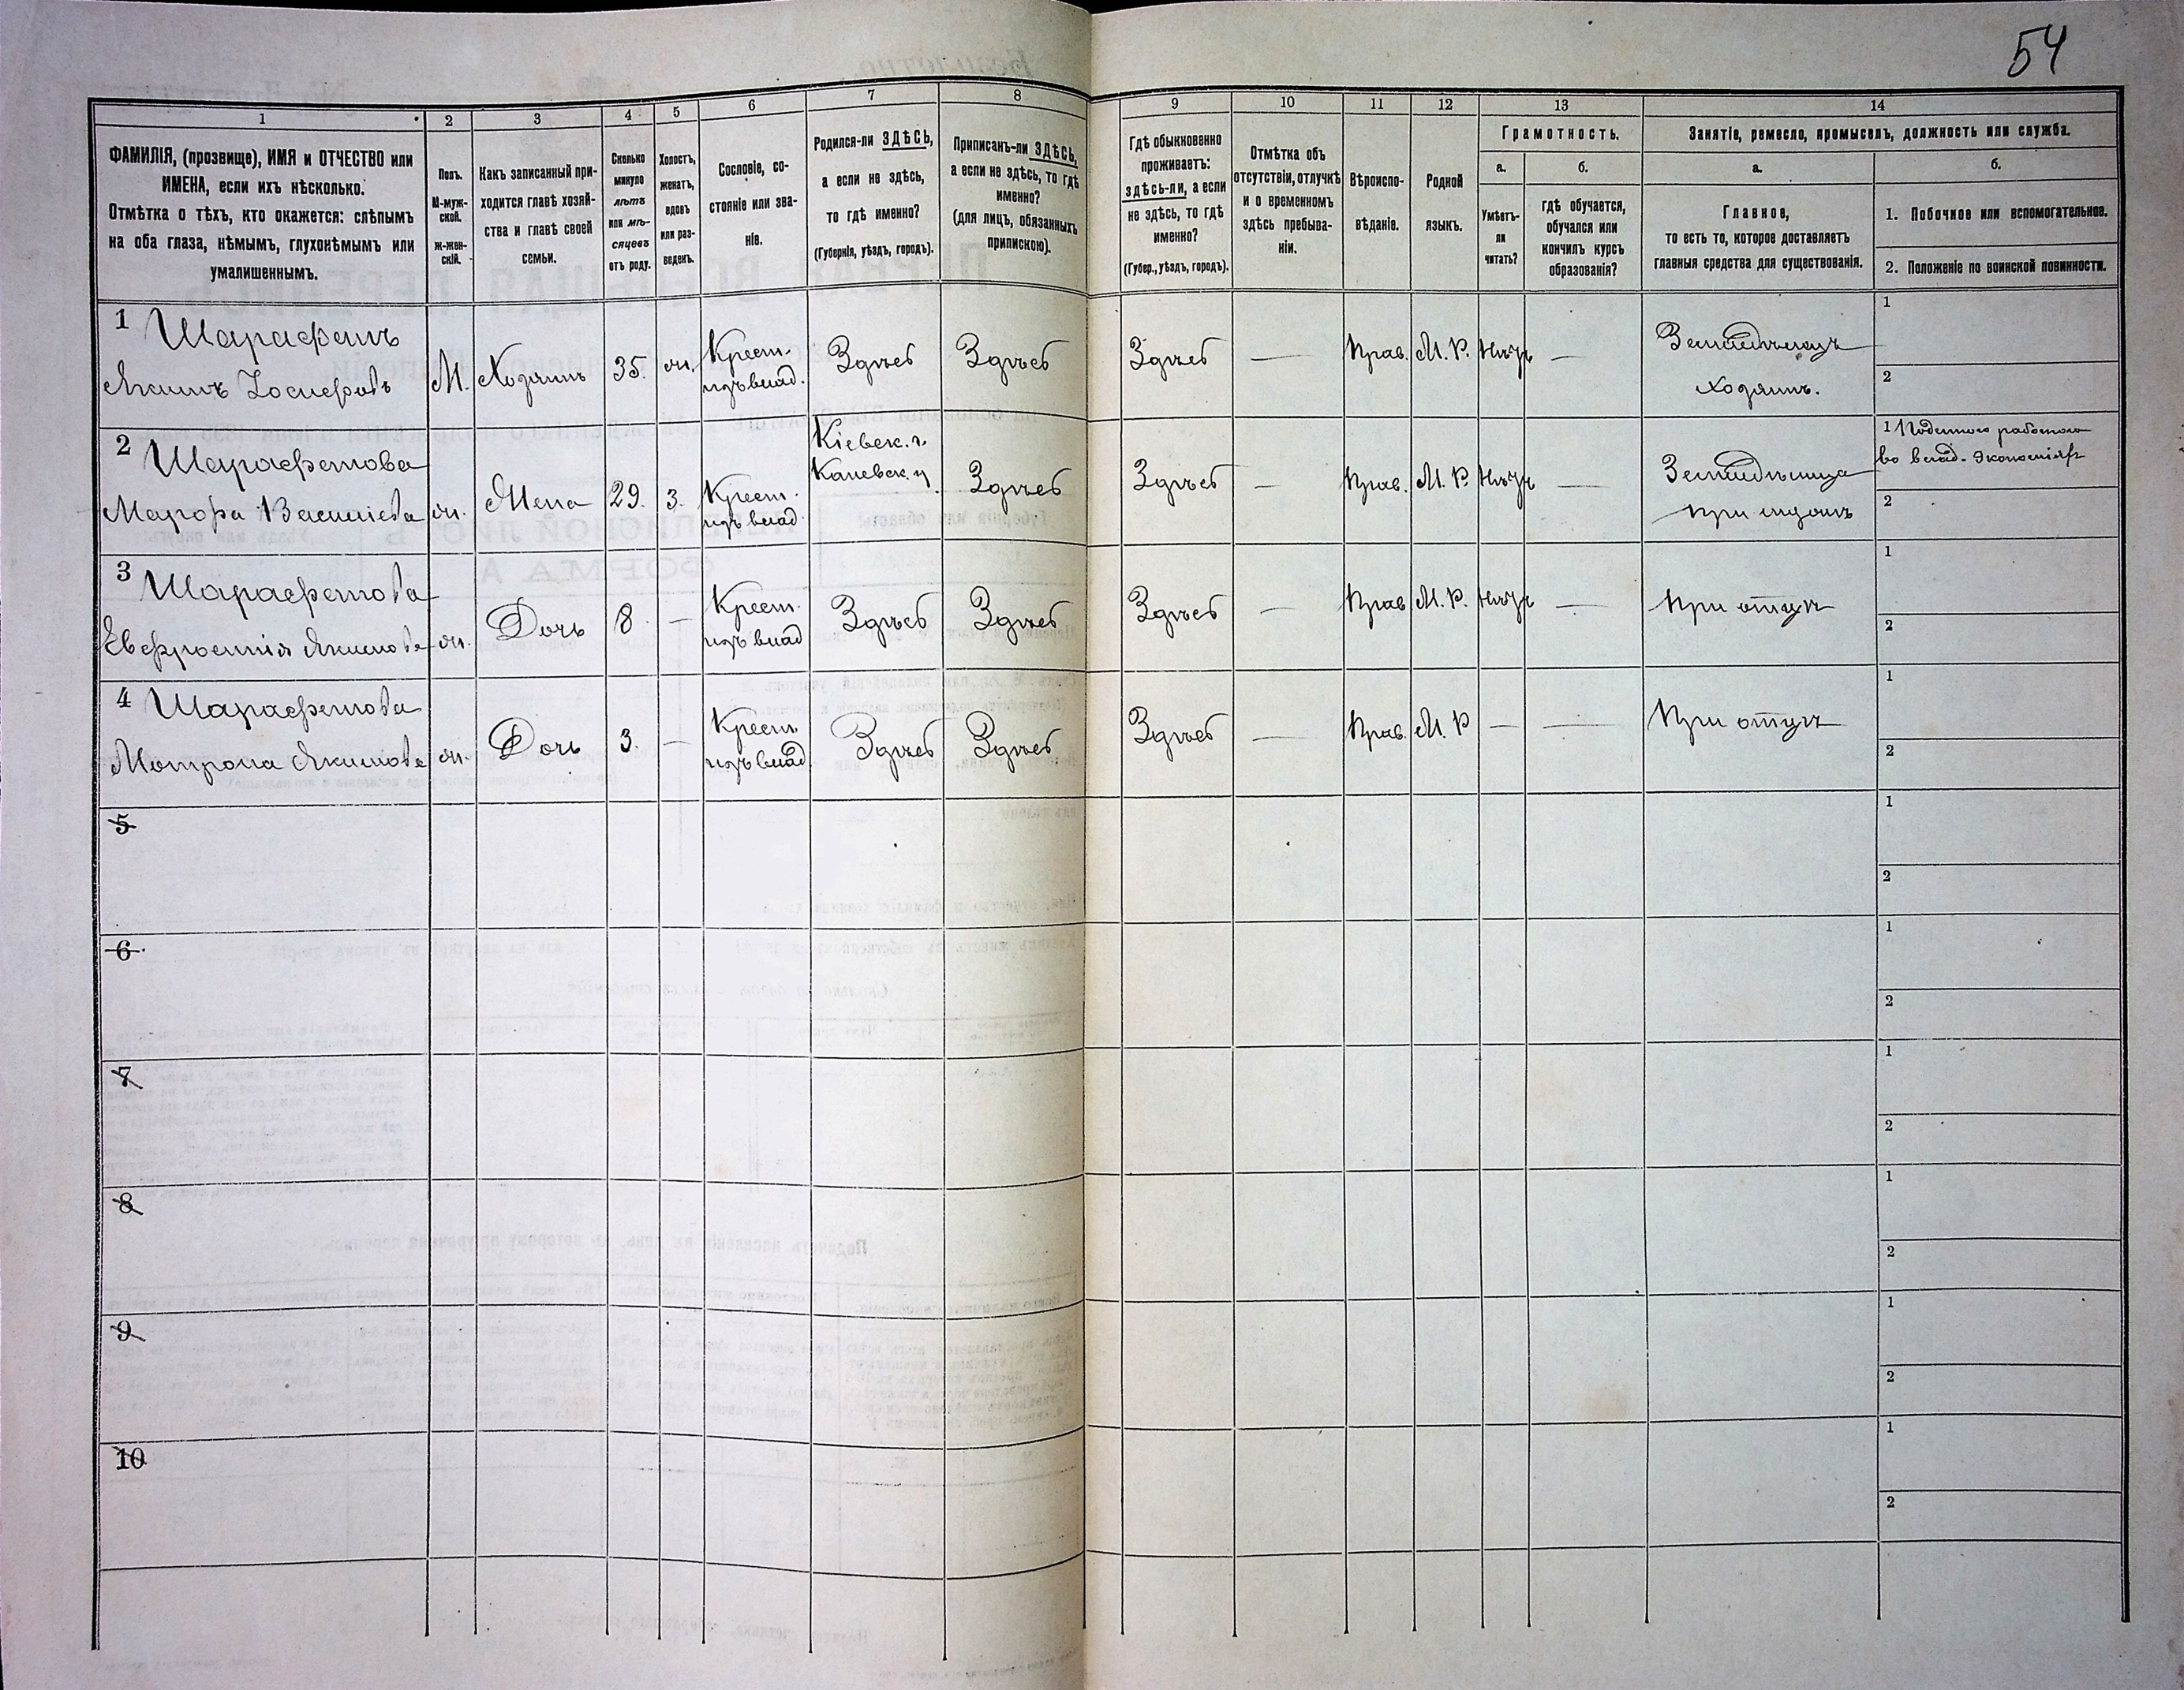 54
1 2 3 4 5 6 7 8 9 10 11 12 13 14
ФАМИЛІЯ, (прозвище), ИМЯ и ОТЧЕСТВО или
ИМЕНА, если ихъ нѣсколько.
Отмѣтка о тѣхъ, кто окажется: слѣпымъ
на оба глаза, нѣмымъ, глухонѣмымъ или
умалишеннымъ.
Полъ.
М-муж-
ской.
Ж-жен-
скій.
Какъ записанный при-
ходится главѣ хозяй-
ства и главѣ своей
семьи.
Сколько
минуло
лѣтъ
или мѣ-
сяцевъ
отъ роду.
Холостъ,
женатъ,
вдовъ
или раз-
веденъ.
Сословіе, со-
стояніе или зва-
ніе.
Родился-ли ЗДѢСЬ,
а если не здѣсь,
то гдѣ именно?
(Губернія, уѣздъ, городъ).
Приписанъ-ли ЗДѢСЬ,
а если не здѣсь, то гдѣ
именно?
(для лицъ, обязанныхъ
припискою).
Гдѣ обыкновенно
проживаетъ:
здѣсь-ли, а если
не здѣсь, то гдѣ
именно?
(Губер., уѣздъ, городъ).
Отмѣтка объ
отсутствіи, отлучкѣ
и о временномъ
здѣсь пребыва-
ніи.
Вѣроиспо-
вѣданіе.
Родной
языкъ.
Грамотность.
а.
Умѣетъ-
ли
читать?
б.
гдѣ обучается,
обучался или
кончилъ курсъ
образованія?
Занятіе, ремесло, промыселъ, должность или служба.
а.
Главное,
то есть то, которое доставляетъ
главныя средства для существованія.
б.
1. Побочное или вспомогательное.
2. Положеніе по воинской повинности.
1 Шарафетъ
Якимъ Іосифовъ
М.
Хозяинъ
35.
ж.
Крест.
изъ влад.
Здѣсь
Здѣсь
Здѣсь
—
Прав.
М. Р.
Нѣтъ
—
Земледѣлецъ
хозяинъ.
1
2
2 Шарафетова
Василіева
ж.
Жена
29.
З.
Крест.
изъ влад.
Кіевск. г.
Каневск. у.
Здѣсь
Здѣсь
—
Прав.
М. Р.
Нѣтъ
—
Земледѣлица
при мужѣ
1 Поденная работа
во влад. экономіяхъ
2
3 Шарафетова
Евфросинія Якимова
ж.
Дочь
8.
—
Крест.
изъ влад
Здѣсь
Здѣсь
Здѣсь
—
Прав
М. Р.
Нѣтъ
—
При отцѣ
1
2
4 Шарафетова
Мотрона Якимова
ж.
Дочь
3.
—
Крест.
изъ влад.
Здѣсь
Здѣсь
Здѣсь
—
Прав.
М. Р
—
—
При отцѣ
1
2
5
1
2
6
1
2
7
1
2
8
1
2
9
1
2
10
1
2